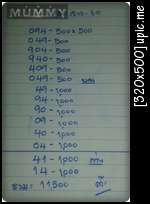 MUMMY
094-500x500
049-500
904-500
940-500
409-500
049-500
49-1,000
94-1,000
90-1,000
09-1,000
40-1,000
04-1,000
41-1,000
14-1,000
รวม = 11,500
[320x500] upic.me